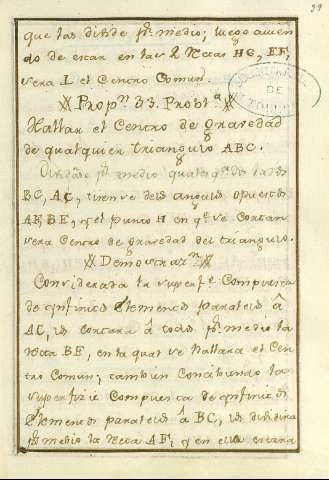 que las divide pr. medio; luego avien
do de estar en las 2 Rectas HG, EF,
sera I. el Centro Comun.
Propn. 83. Probla.
Hallar el Centro de gravedad
de qualquier triangulo ABC.
Dividase pr. medio qualesqa. dos lados
BC, AC, tirense de los angulos opuestos
AF, BE, y el punto H en qe. se cortan
sera Centro de gravedad del triangulo.
Demostrazn.
Considerada la superfe. Compuesta
de infinitos Elementos paralelos â
AC, los cortara â todos pr. medio la
recta BE, en la qual se hallara el Cen
tro Comun; tambien Concibiendo la
superfizie Compuesta de infinitos
Elementos paralelos â BC, los dividira
pr. medio la Recta AF, y en ella estara